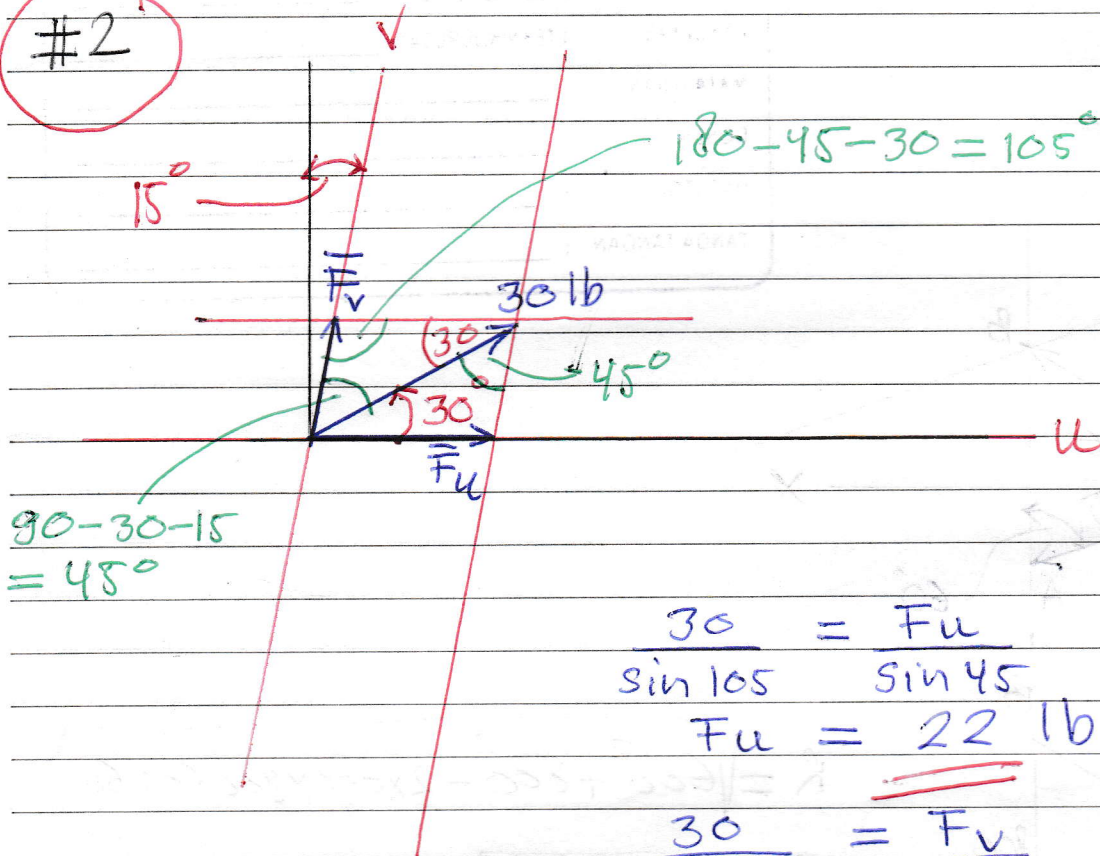 #2
V
180-45-30 = 105°
15°
F̅v
30 lb
30
45°
30°
U
F̅u
90-30-15
= 45°
30 = Fu
sin 105 sin 45
Fu = 22 lb
30 = Fv